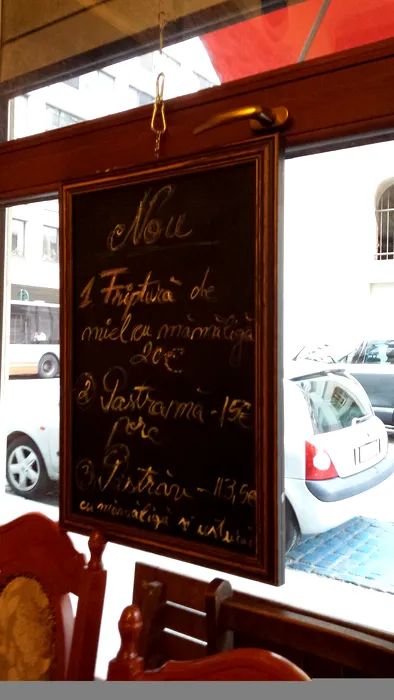 Nou
1 Friptură de
miel cu mămăligă
20€
② Pastramă - 15€
③ Păstrăv - 13,5€
cu mămăligă și usturoi